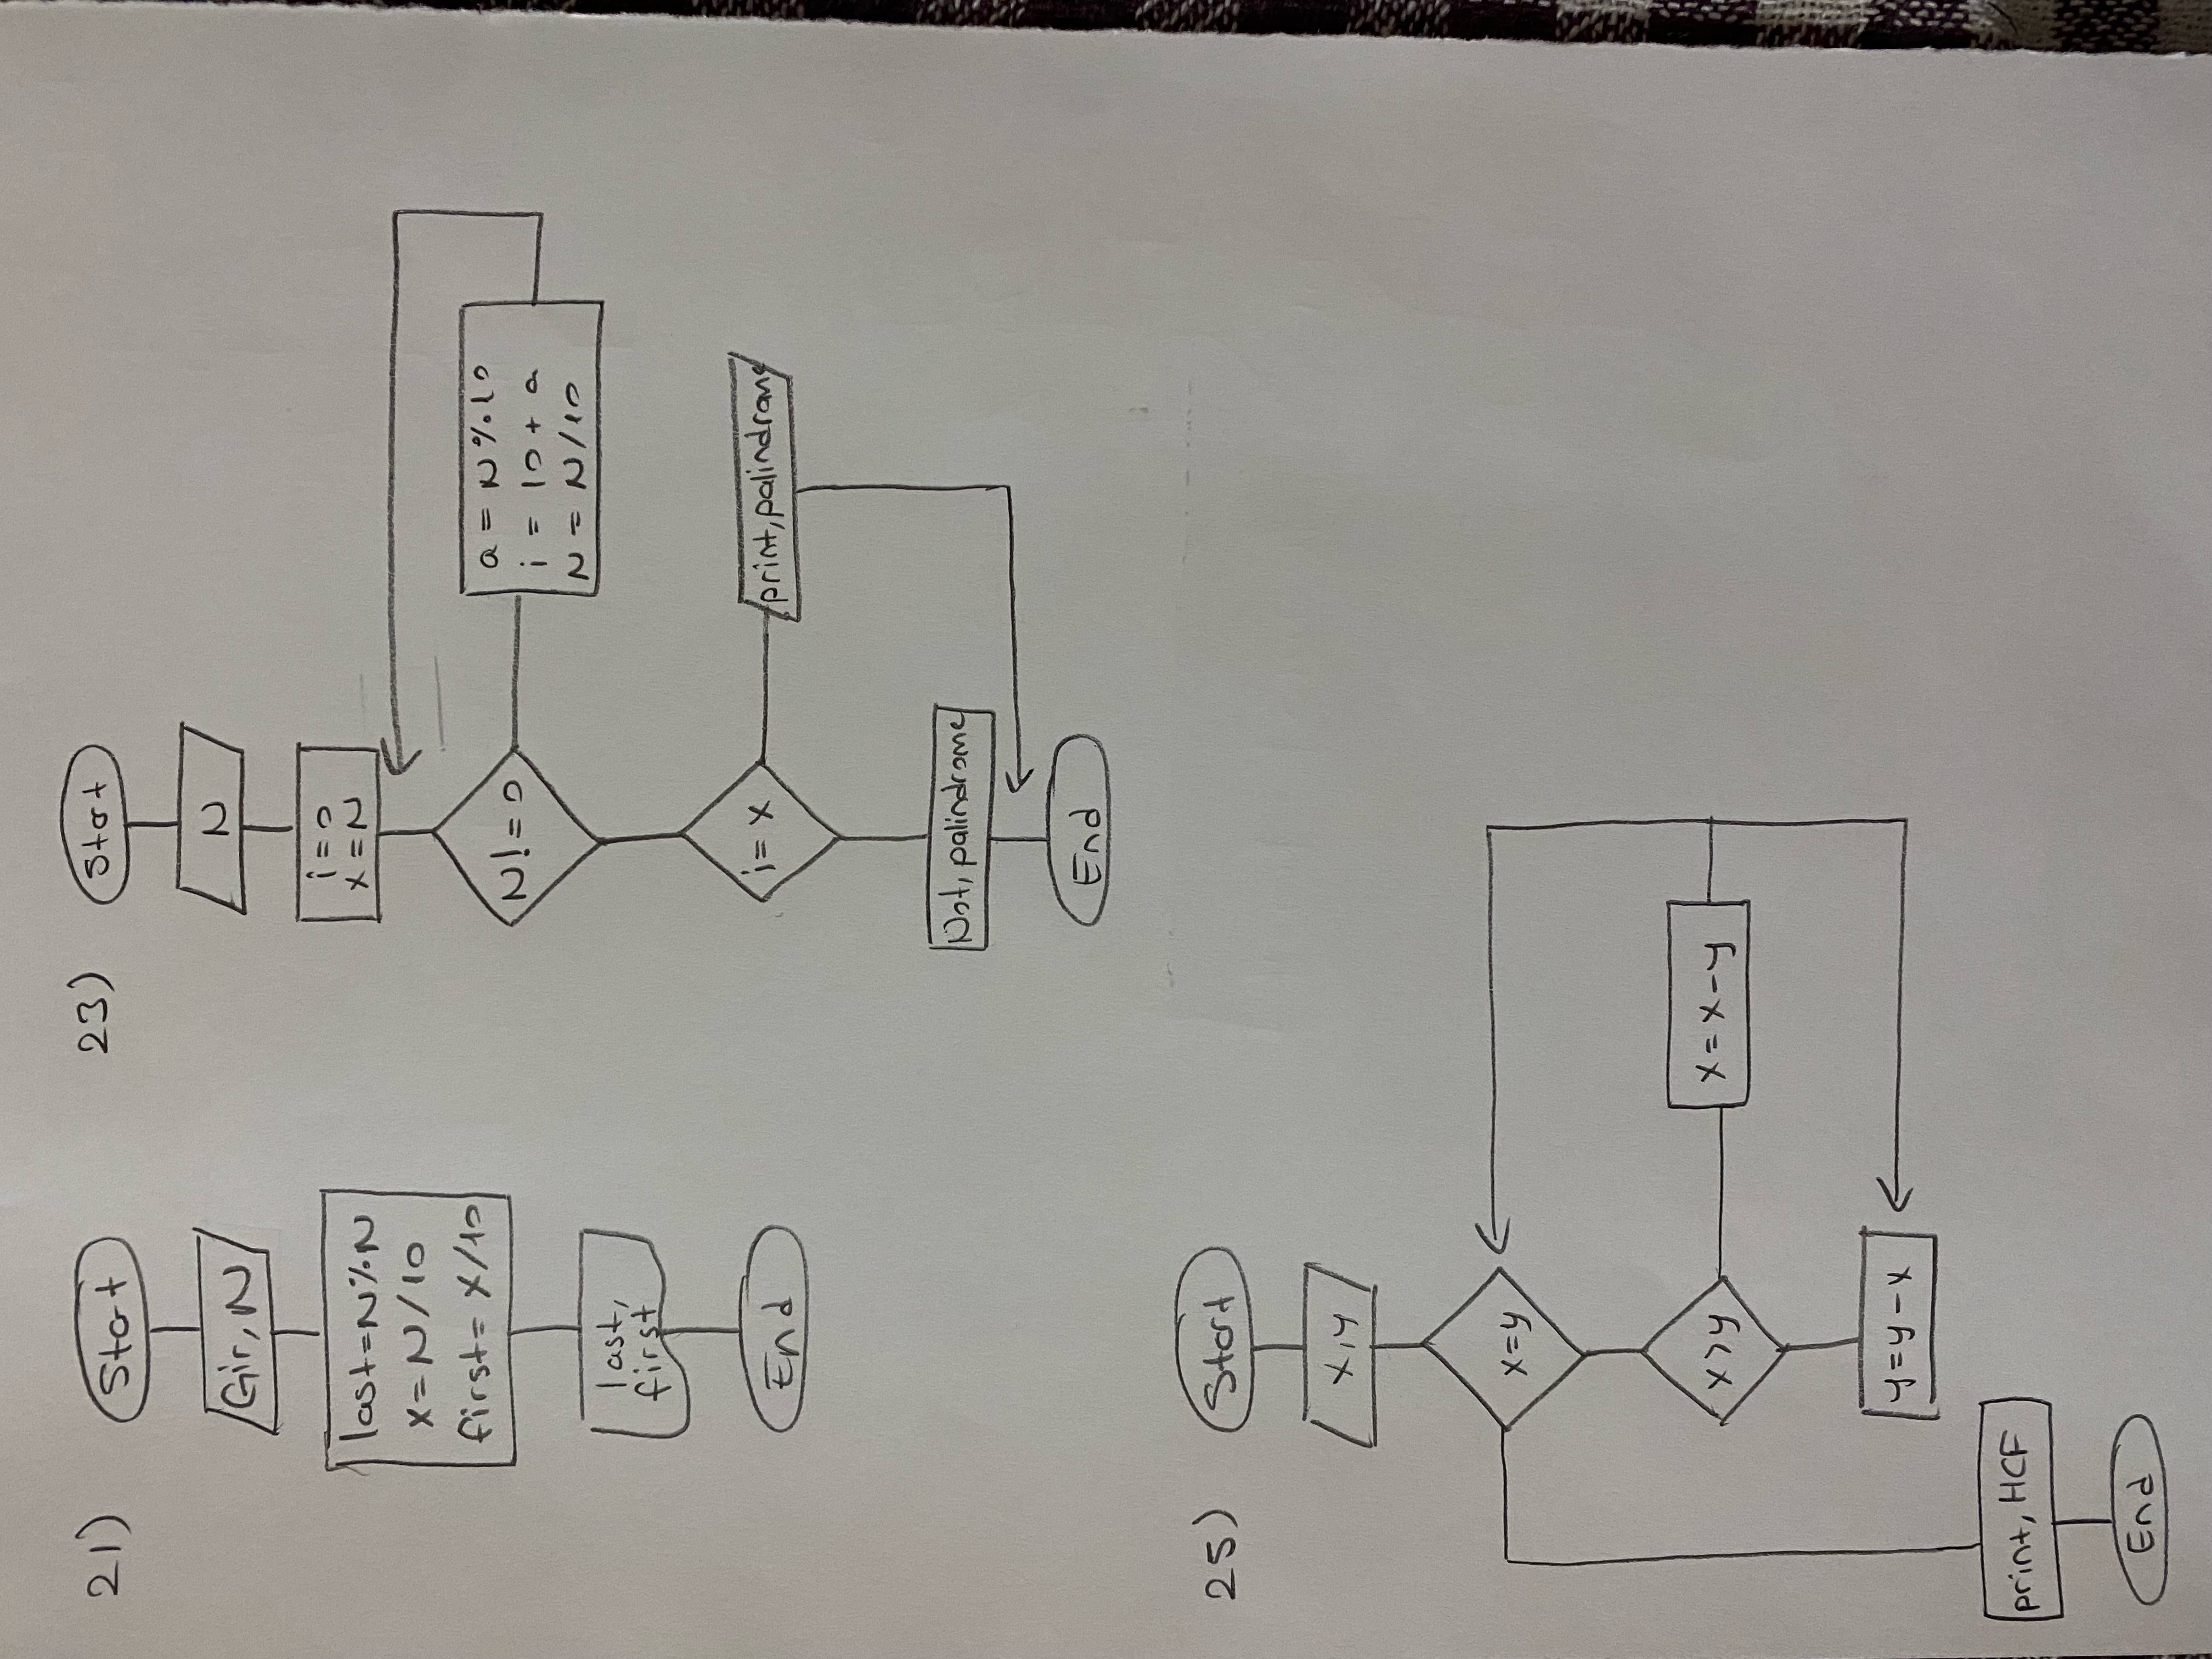 21)
Start
Gir, N
last=N%N
x=N/10
first=x/10
last,
first
End
23)
Start
N
i=0
x=N
N!=0
a=N%10
i=10+a
N=N/10
i=x
print, palindrome
Not, palindrome
End
25)
Start
x,y
x=y
x>y
x=x-y
y=y-x
print, HCF
End